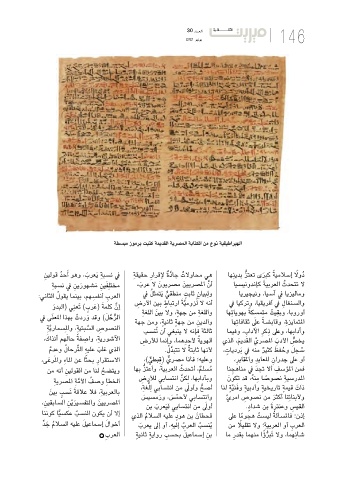 146
العدد 30
الهيراطيقية نوع من الكتابة المصرية القديمة كتبت برموز مبسطة
دُولًا إسلاميةً كبرى تعتزُّ بدينِها
لا تتحدثُ العربيةَ كإندونيسيا
وماليزيا في آسيا، ونيجيريا
والسنغال في أفريقيا، وتركيا في
أوروبا، وبقيت متمسكةً بهوياتها
وآدابها، وعلى ذِكرِ الآداب، وفيما
يخصُّ الأدبَ المصريَّ القديمَ، الذي
سُجلَ وحُفظَ كثيرٌ منه في برديات،
أو على جدرانِ المعابدِ والمقابرِ،
فمن المؤسف ألا نجدَ في مناهجنا
الدراسية نصوصًا منهُ، قد تكون
ذاتَ قيمةٍ تاريخيةٍ وأدبيةٍ وفنيَّةٍ لنا
ولأبنائنا أكثر من نصوص امرئ
القيس وعنترة بن شداد.
إذن، فالمسألةُ ليستْ هجومًا على
العربِ أو العربيةِ، ولا تقليلًا من
شأنهما، ولا تبرُّؤًا منهما بقدرِ ما
هي محاولاتٌ جادَّةٌ لإقرارِ حقيقةِ
أنَّ المصريين مصريون لا عرب،
ولبيانِ ثابتٍ منطقيٍّ يتمثلُ في
أنه لا لزوميَّةَ ارتباطٍ بين الأرضِ
واللغةِ من جهةٍ، ولا بينَ اللغةِ
والدينِ من جهةٍ ثانيةٍ، ومن جهةٍ
ثالثةٍ فإنه لا ينبغي أن تُنسبَ
الهويةُ لأحدِهما، وإنما للأرضِ
لأنها ثابتةٌ لا تتبدَّلُ.
وعليه؛ فأنا مصريٌّ (قبطيٌّ)،
مُسلمٌ، أتحدثُ العربيةَ، وأعتزُّ بها
وبآدابِها، لكنَّ انتسابي للأرضِ
أصحُّ وأولى من انتسابي للُّغةِ،
وانتسابي لأحمُسَ، ورمسيسَ
أولى من انتسابي ليعربَ بنِ
قحطانَ بنِ هودٍ عليه السلام الذي
يُنسبُ العربُ إليه، أو إلى يعربَ
بنِ إسماعيل بحسبِ روايةٍ ثانيةٍ
في نسبةِ يعرب، وهو أحدُ قولينِ
مختلفينِ مشهورينِ في نسبةِ
العربِ أنفسِهم، بينما يقولُ الثاني:
إنَّ كلمةَ (عرب) تعني (البدوَ
الرُّحَّلَ) وقد وردتْ بهذا المعنى في
النصوصِ السَّبئيةِ، والمسماريَّةِ
الآشوريةِ، واصفةً حالَهم آنذاك،
الذي غلبَ عليهِ التَّرحالُ وعدمُ
الاستقرارِ بحثًا عن الماءِ والمرعى،
ويتضحُ لنا من القولينِ أنه من
الخطأِ وصفُ الأمَّةِ المصريةِ
بالعربيةِ، فلا علاقةَ نسبٍ بينَ
المصريينِ والتفسيرينِ السابقين،
إلا أن يكونَ النسبُ عكسيًّا كوننا
أخوالَ إسماعيل عليه السلام جَدِّ
العرب